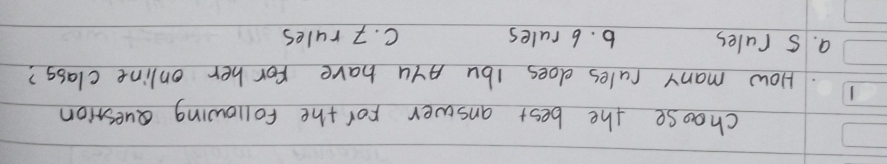 Choose the best answer for the following Question
1. How many rules does Ibu Ayu have for her online class?
a. 5 rules b. 6 rules c. 7 rules